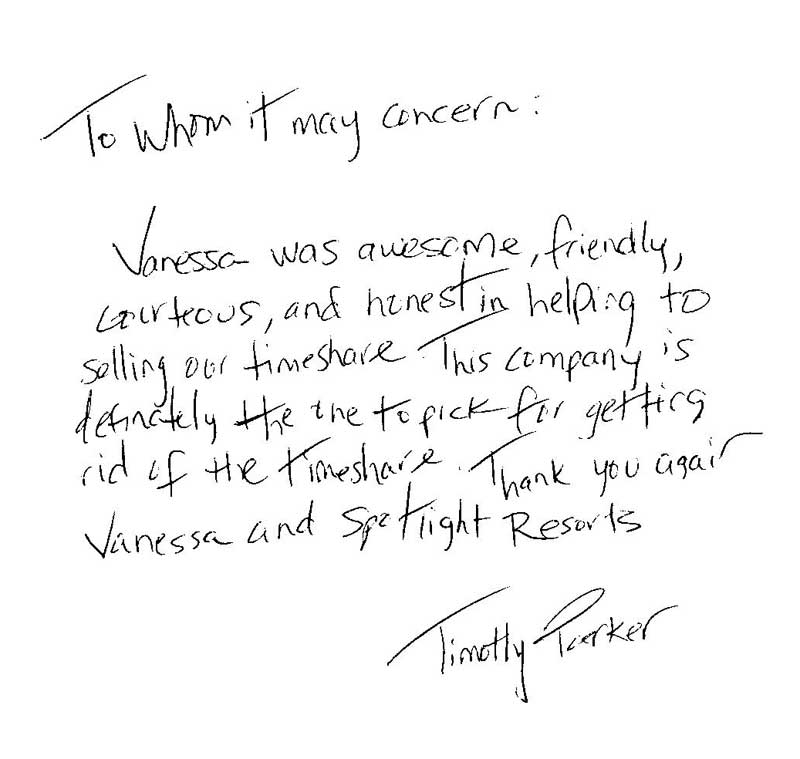 To whom it may concern:
Vanessa was awesome, friendly,
courteous, and honest in helping to
selling our timeshare. This company is
definately the the to pick for getting
rid of the timeshare. Thank you again
Vanessa and Spotlight Resorts
Timothy Parker